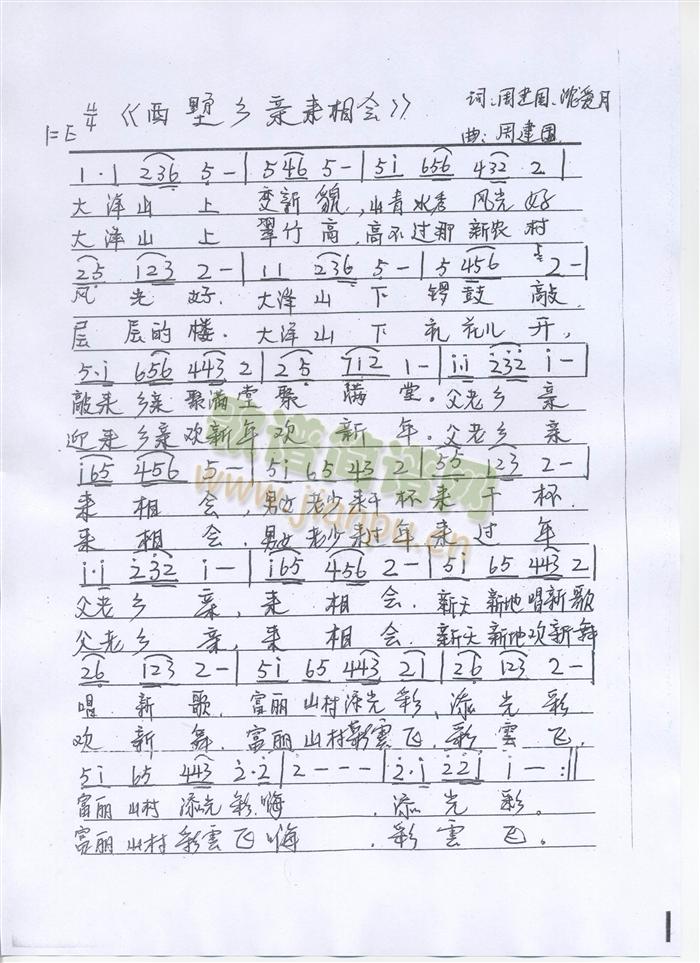 1=E 4/4 《西墅乡亲来相会》 词:周建国、沈爱月
曲:周建国
1·1 236 5 - | 546 5 - | 5i 656 432 2 |
大泽山 上 变新貌,山青水秀 风光好
大泽山 上 翠竹高,高不过那新农村
25 123 2 - | 11 236 5 - | 5 456 2 - |
风 光 好. 大泽山 下 锣鼓 敲.
层 层的楼. 大泽山 下 礼花儿开,
5·i 656 443 2 | 25 712 1 - | ii 232 i - |
敲来乡亲 聚满堂 聚 满 堂。父老乡 亲
迎来乡亲欢新年欢 新 年.父老乡 亲
i65 456 5 - | 5i 65 43 2 | 55 123 2 - |
来 相 会,男女老少来干杯来 干 杯.
来 相 会,男女老少来过年来 过 年
i·i 232 i - | i65 456 2 - | 5i 65 443 2
父老乡 亲,来 相 会. 新天新地唱新歌
父老乡 亲,来 相 会.新天新地欢新舞
26 123 2 - | 5i 65 443 2i | 26 123 2 - |
唱 新 歌. 富丽山村添光彩、添 光 彩
欢 新 舞.富丽山村彩雲飞.彩 雲 飞.
5i 65 443 2·2 | 2 - - - | 2·i 22i i - :||
富丽山村 添光彩.嗨 . 添 光 彩。
富丽山村彩雲飞 嗨 . 彩 雲 飞。
歌谱简谱网
www.jianpu.cn